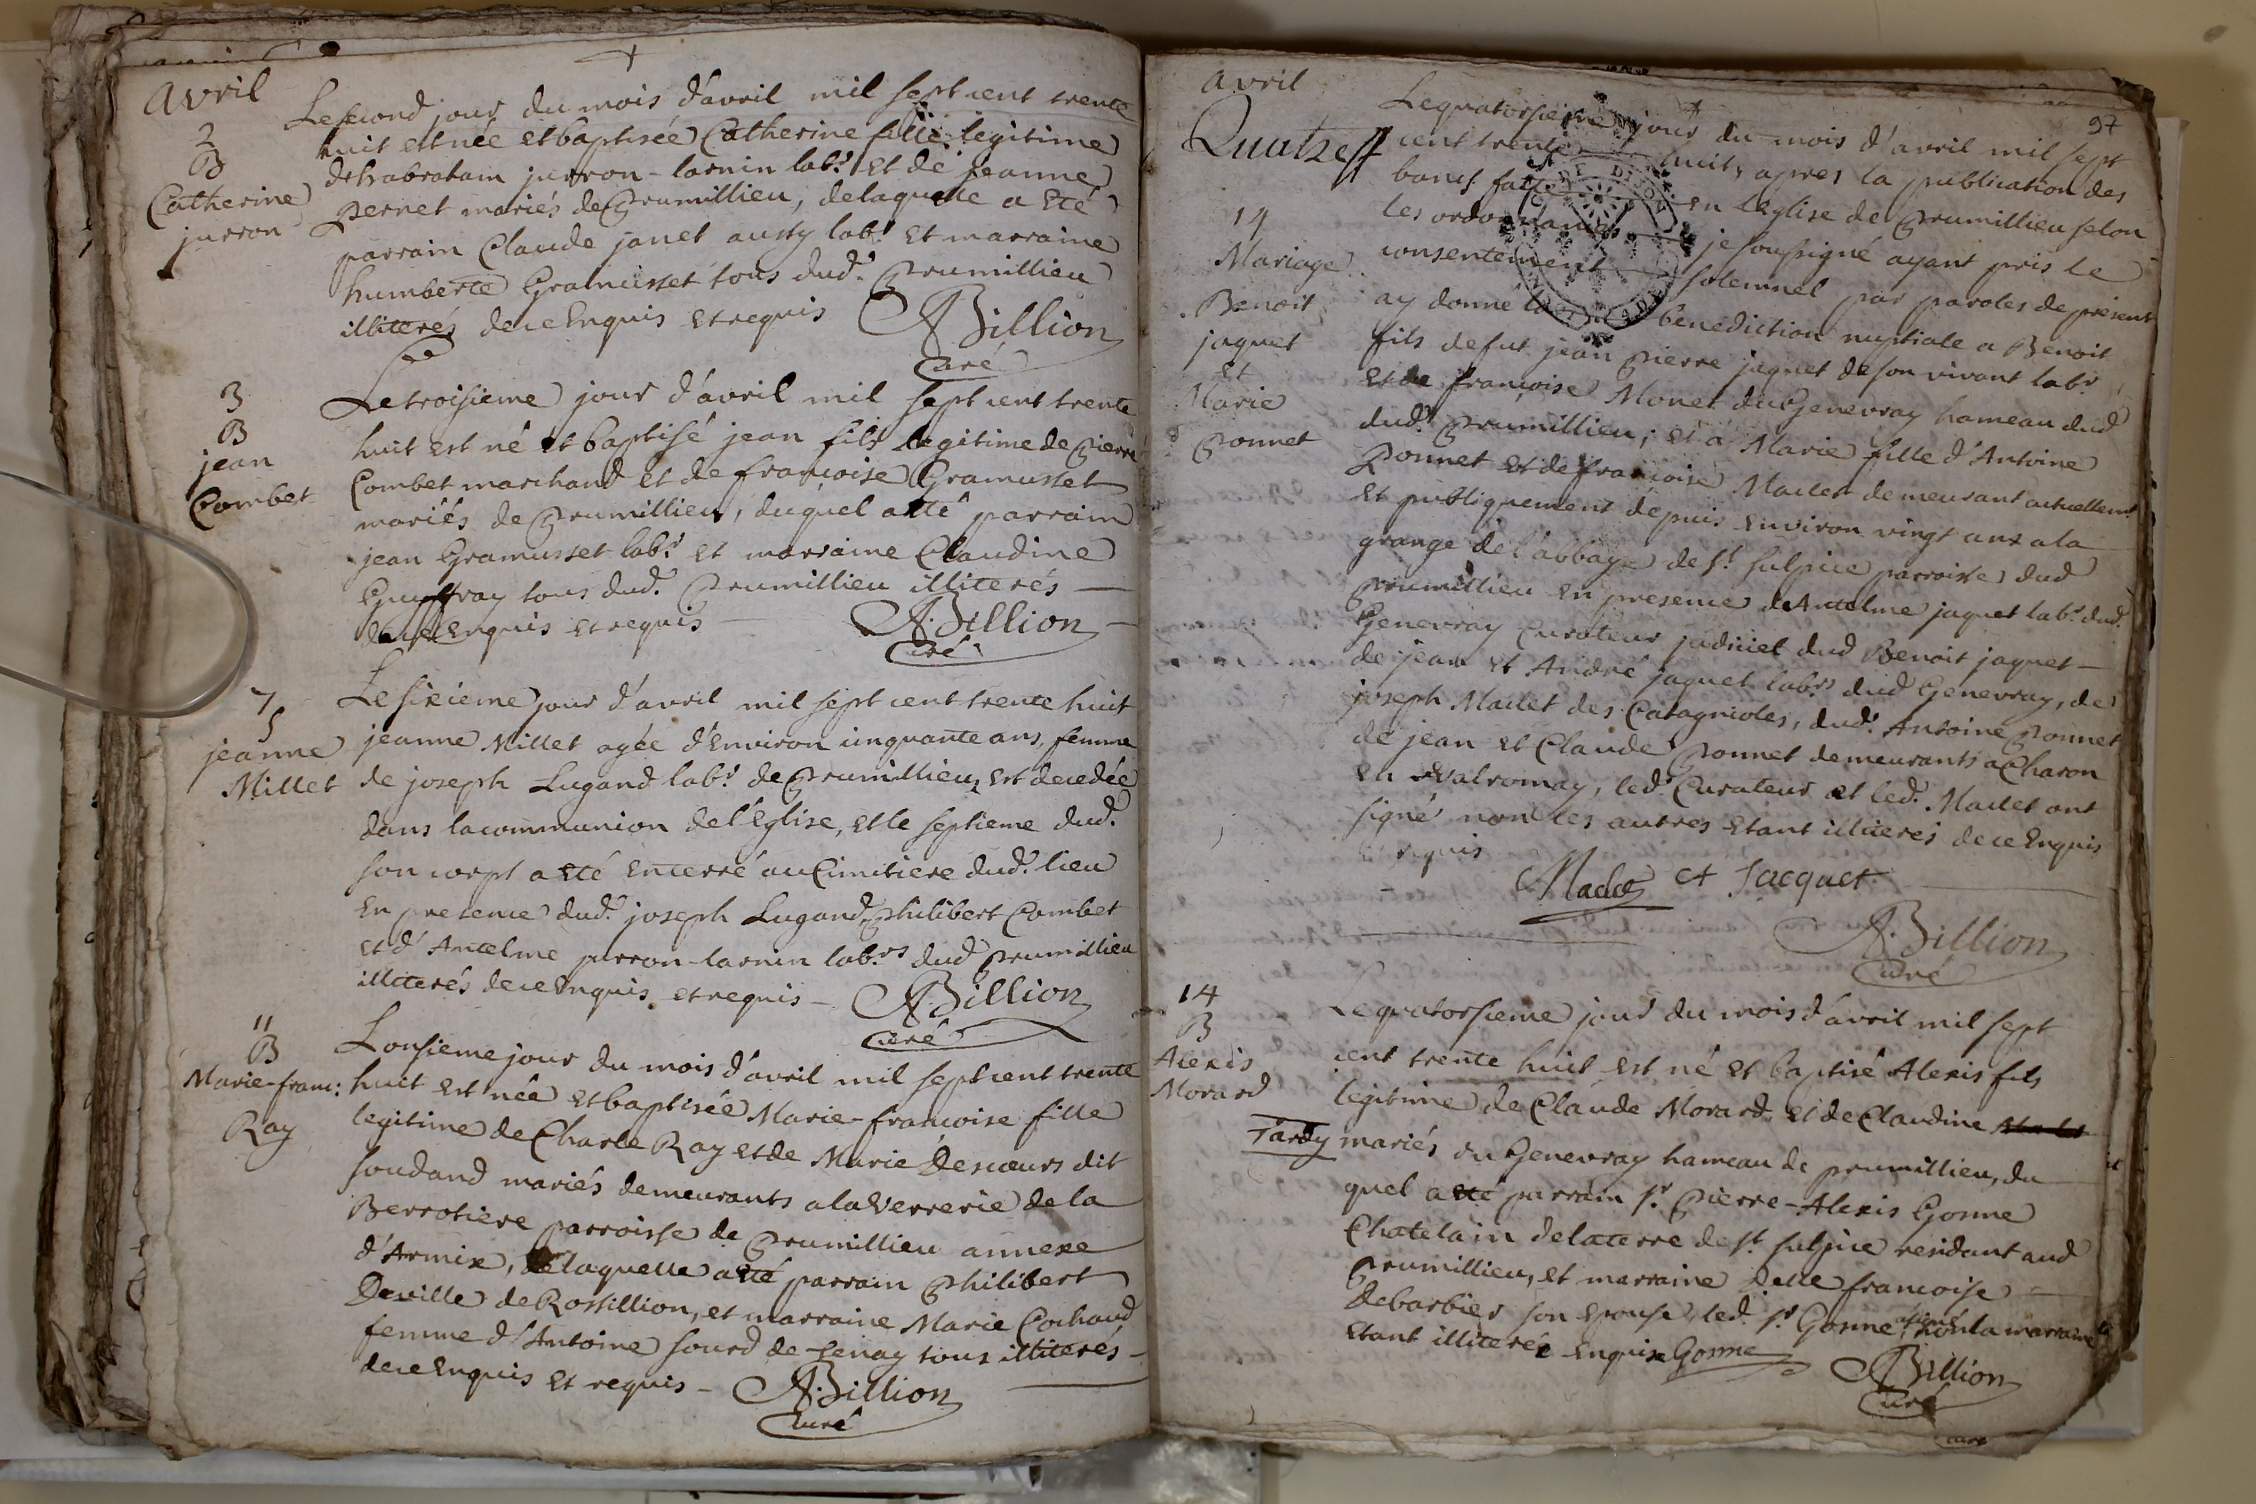 avril
Le second jour du mois d'avril mil sept cent trente
2
huit est née et baptisée Catherine fille legitime
B
d'habraham jurron-larnin lab.r et de jeanne
Catherine
jurron
Pernet mariés de Prumillieu, delaquelle a eté
parrain Claude janet aussy lab.r et marraine
humberte Gramusset tous dud.t Prumillieu
illiterés de ce Enquis et requis
A Billion
curé
3
B
jean
Combet
Le troisieme jour d'avril mil sept cent trente
huit est né et baptisé jean fils legitime de Pierre
Combet marchand et de francoise Gramusset
mariés de Prumillieu, duquel a eté parrain
jean Gramusset lab.r et marraine Claudine
Guyffray tous dud.t Prumillieu illiterés
de ce Enquis et requis
A. Billion
Curé
7
S
jeanne
Millet
Le sixieme jour d'avril mil sept cent trente huit
jeanne Millet agée d'Environ cinquante ans, femme
de joseph Lugand lab.r de Prumillieu, est decedée
dans la communion de l'Eglise, et le septieme dud.t
son corps a eté enterré au Cimitiere dud.t lieu
En presence dud.t joseph Lugand, Philibert Combet
et d'Antelme jurron-larnin lab.rs dud Prumillieu
illiterés de ce Enquis et requis
A. Billion
curé
11
B
Marie-franc:
Ray
L'onsieme jour du mois d'avril mil sept cent trente
huit est née et baptisée Marie-francoise fille
legitime de Charle Ray et de Marie Descœurs dit
soudand mariés demeurants a la Verrerie de la
Berrotiere parroisse de Prumillieu annexe
d'Armix, de laquelle a eté parrain Philibert
Deville de Rossillion, et marraine Marie Cochaud
femme d'Antoine sourd de Tenay tous illiterés
de ce Enquis et requis
A. Billion
curé
avril
97
Quatze
14
Mariage
Benoit
jaquet
Et
Marie
Ponnet
Le quatorsieme jour du mois d'avril mil sept
cent trente huit, apres la publication des
bancs faite En l'Eglise de Prumillieu selon
les ordonnances je soussigné ayant pris le
consentement solemnel par paroles de present
ay donné la benediction nuptiale a Benoit
fils de fut jean Pierre jaquet de son vivant lab.r
et de francoise Monet du Genevray hameau dud
dud.t Prumillieu, et a Marie fille d'Antoine
Ponnet et de francoise Maclet demeurant actuellem.t
et publiquement depuis Environ vingt ans a la
grange de l'abbaye de s.t sulpice parroisse dud
Prumillieu En presence de Antelme jaquet lab.r dud.
Genevray Curateur judiciel dud Benoit jaquet
de jean et André jaquet lab.rs dud Genevray, de
joseph Maclet des Catagnoles, dud.t Antoine Ponnet
de jean et Claude Ponnet demeurants a Charon
En Valromay, led.t Curateur et led.t Maclet ont
signé non les autres etant illiterés de ce Enquis
et requis
Maclet et Jacquet
A. Billion
Curé
14
B
Alexis
Morard
Le quatorsieme jour du mois d'avril mil sept
cent trente huit est né et baptisé Alexis fils
legitime de Claude Morard et de Claudine
Tardy mariés du Genevray hameau de prumillieu, du
quel a eté parrain s.r Pierre-Alexis Gonne
Chatelain de la terre de s.t sulpice residant aud
Prumillieu, et marraine d.elle francoise
Debarbier son Epouse, led.t s.r Gonne a signé non la marraine
Etant illiterée Enquise Gonne
A Billion
curé